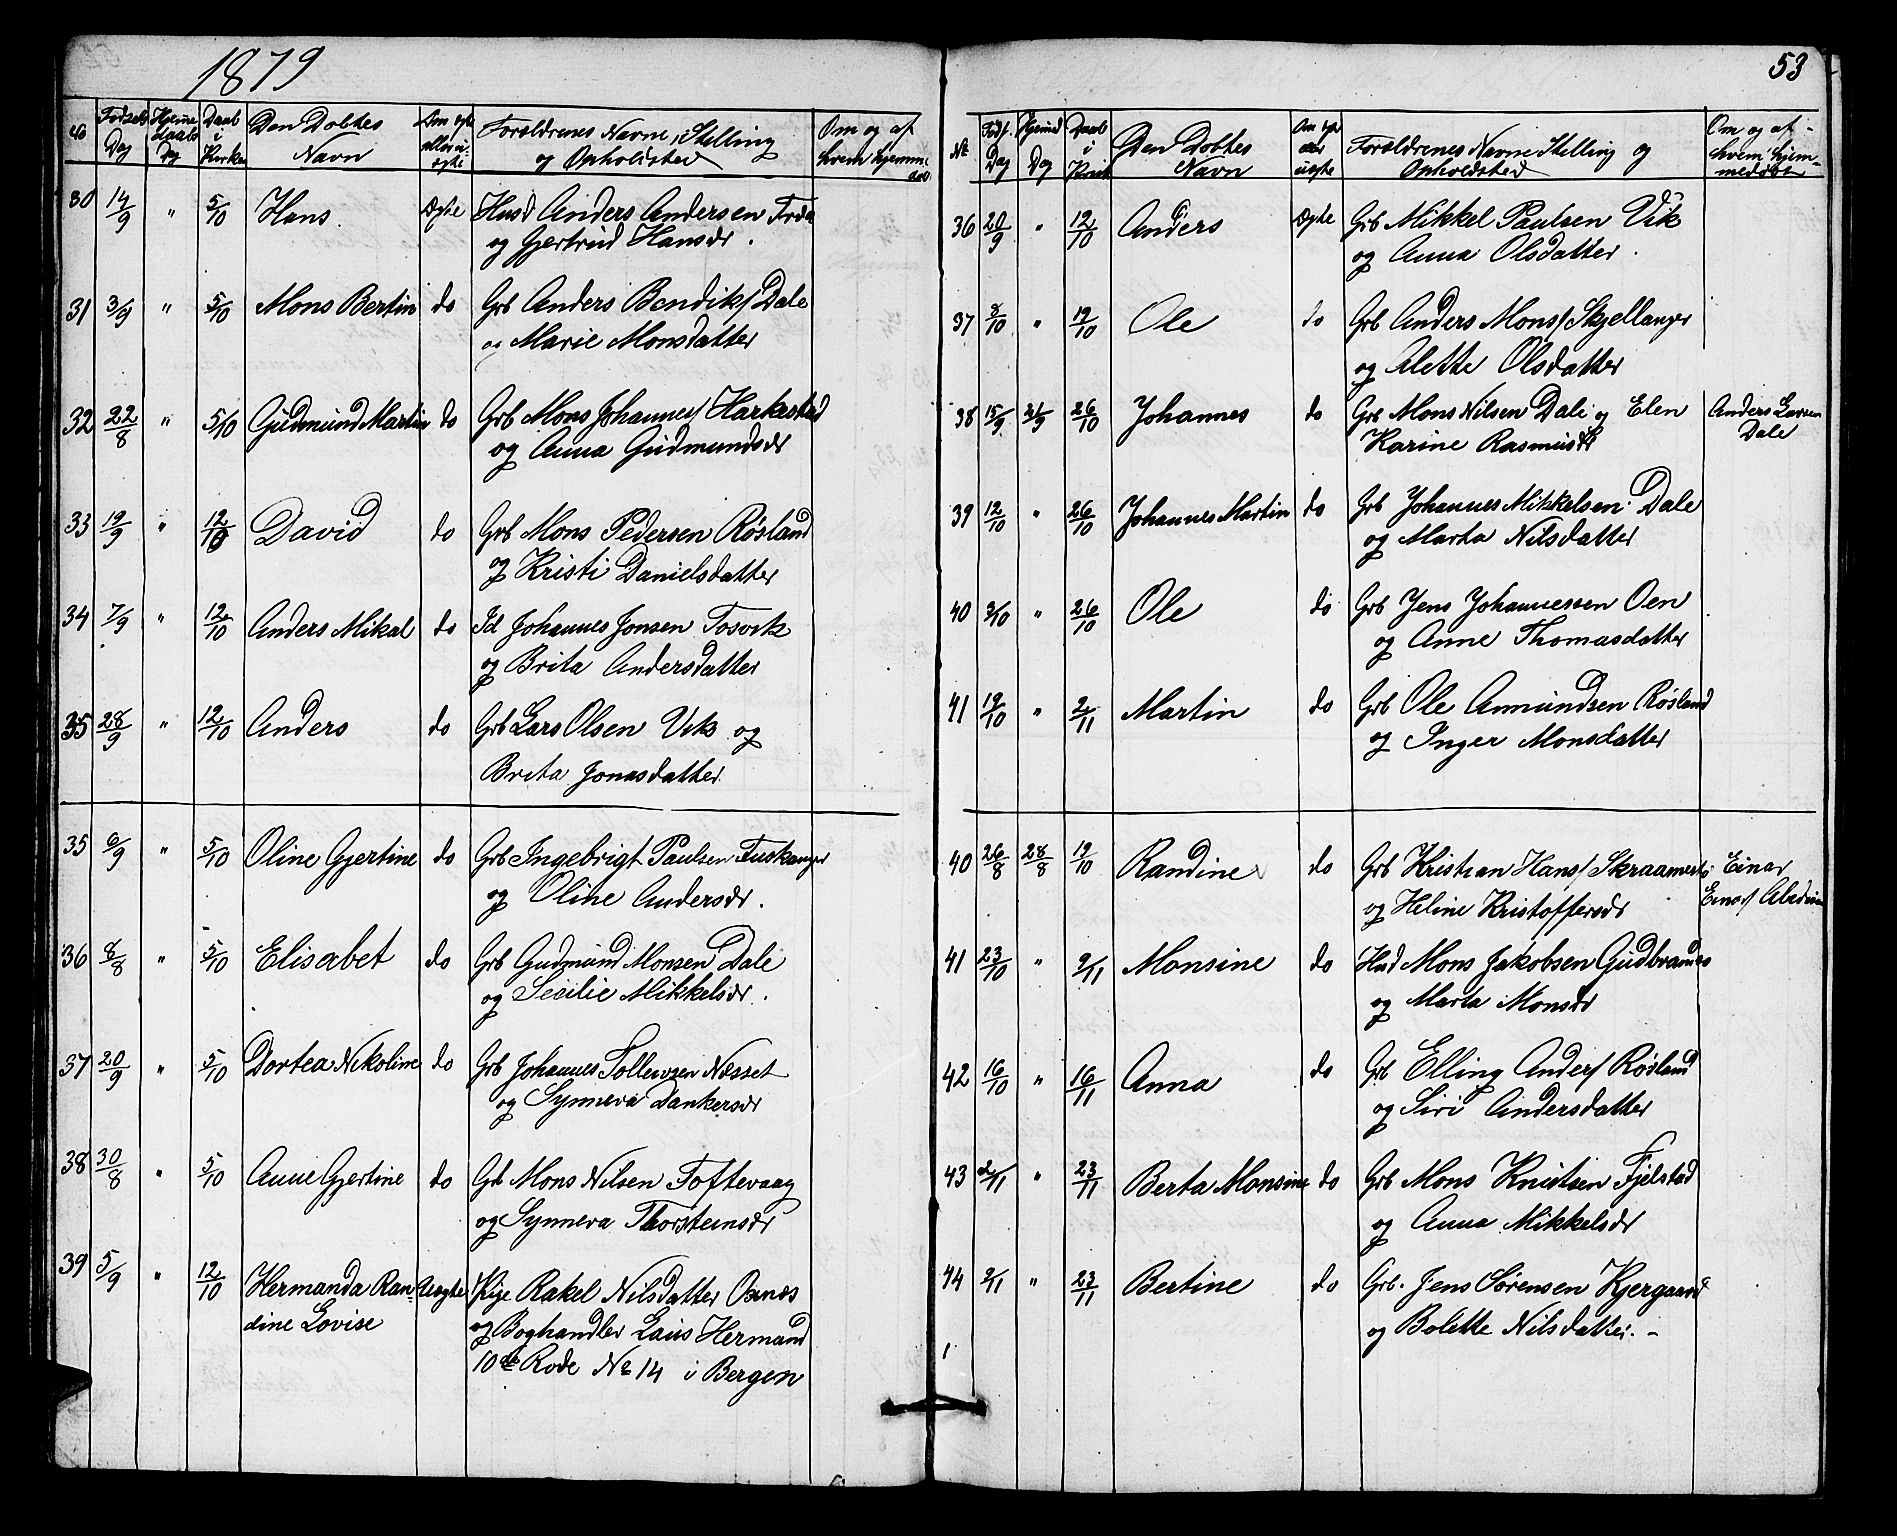 1879
No Fødsels Dag Hjemme daabs Dag Daab i Kirke Den Døbtes Navn Om egte eller uegte Forældrenes Navne, Stilling og Opholdsted Om og af hvem hjemmedøbt
30 14/9 " 5/10 Hans Ægte Husd Anders Andersen
og Gjertrud Hansdr.
31 3/9 " 5/10 Mons Bertin do Grb Anders Bendiks/ Dale
og Marie Monsdatter
32 22/8 " 5/10 Gudmund Martin do Grb Mons Johannes/ Harkestad
og Anna Gudmundsdr
33 19/9 " 12/10 David do Grb Mons Pedersen Røsland
og Kristi Danielsdatter
34 7/9 " 12/10 Anders Mikal do Id Johannes Jonsen Tosvik
og Brita Andersdatter
35 28/9 " 12/10 Anders do Grb Lars Olsen Vik og
Brita Jonasdatter
35 6/9 " 5/10 Oline Gjertine do Grb Ingebrigt Paulsen Fuskanger
og Oline Andersdr.
36 8/8 " 5/10 Elisabet do Grb Gudmund Monsen Dale
og Secilie Mikkelsdr.
37 20/9 " 5/10 Dortea Nikoline do Grb Johannes Tollevsen Næsset
og Synneva Dankersdr
38 30/8 " 5/10 Anne Gjertine do Grb Mons Nilsen Toftevaag
og Synneva Thorsteinsdr
39 5/9 " 12/10 Hermanda Ran- Uægte Pige Rakel Nilsdatter Osnes
dine Lovise og Boghandler Laus Hermand
10de Rode No 14 i Bergen
53
No Føds. Dag Hjemd Dag Daab i Kirk Den Døbtes Navn Om egte eller uegte Forældrenes Navne Stilling og Opholdsted Om og af hvem hjemmedøbt
36 20/9 " 12/10 Anders Ægte Grb Mikkel Paulsen Vik
og Anna Olsdatter.
37 8/10 " 19/10 Ole do Grb Anders Mons/ Skjellanger
og Alette Olsdatter
38 15/9 21/9 26/10 Johannes do Grb Mons Nilsen Dale og Elen Anders Larsen
Karine Rasmusdr Dale
39 12/10 " 26/10 Johannes Martin do Grb Johannes Mikkelsen Dale
og Marta Nilsdatter
40 3/10 " 26/10 Ole do Grb Jens Johannessen Oen
og Anne Thomasdatter
41 19/10 " 2/11 Martin do Grb Ole Anmundsen Røsland
og Inger Monsdatter
40 26/8 28/8 19/10 Randine do Grb Kristian Hans/ Skraamest. Einar
og Heline Kristoffersdr Einar/
41 23/10 " 9/11 Monsine do Husd Mons Jakobsen Gudbrands
og Marta Monsdr
42 16/10 " 16/11 Anna do Grb Elling Anders/ Røsland
og Siri Andersdatter
43 2/11 " 23/11 Berta Monsine do Grb Mons Knutsen Fjelstad
og Anna Mikkelsdr
44 9/11 " 23/11 Bertine do Grb. Jens Sørensen Kjergaard
og Bolette Nilsdatter. -